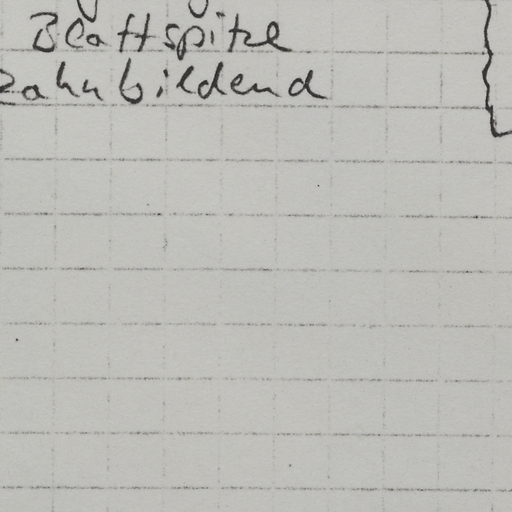 Blattspitze
zahnbildend